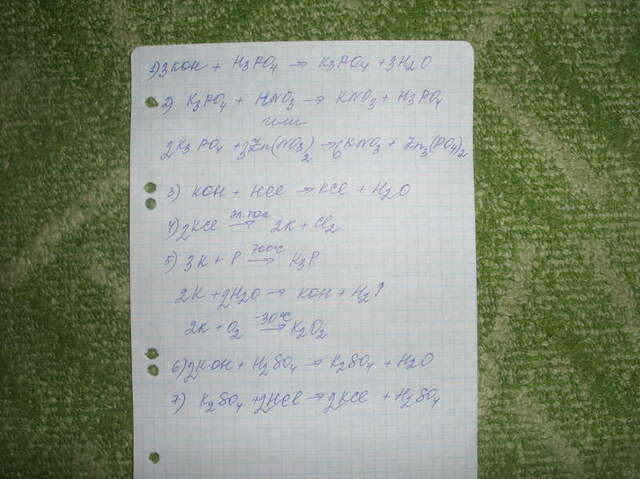 1) 3KOH + H3PO4 → K3PO4 + 3H2O
2) K3PO4 + HNO3 → KNO3 + H3PO4
или
2K3PO4 + 3Zn(NO3)2 → 6KNO3 + Zn3(PO4)2
3) KOH + HCl → KCl + H2O
4) 2KCl эл.ток → 2K + Cl2
5) 3K + P 200°C → K3P
2K + 2H2O → KOH + H2↑
2K + O2 -30°C → K2O2
6) 2KOH + H2SO4 → K2SO4 + H2O
7) K2SO4 + 2HCl → 2KCl + H2SO4